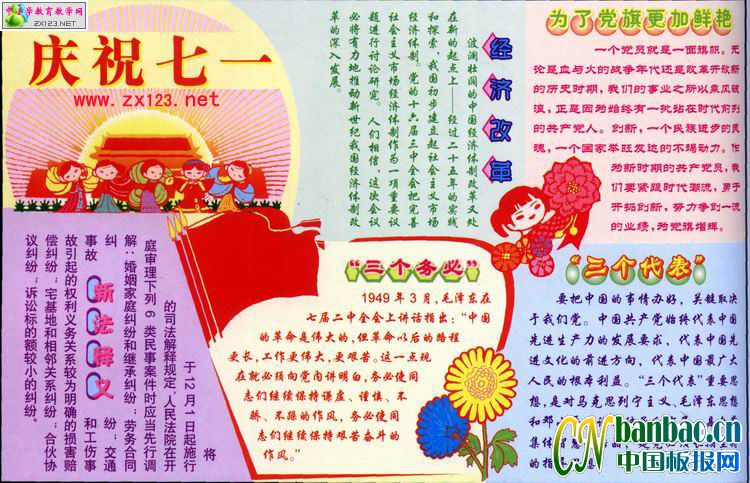 中小学教育教学网
ZX123.NET
庆祝七一
www.zx123.net
经济改革
波澜壮阔的中国经济体制改革又处
在新的起点上——经过二十五年的实践
和探索，我国初步建立起社会主义市场
经济体制。党的十六届三中全会把完善
社会主义市场经济体制作为一项重要议
题进行讨论研究。人们相信，这次会议
必将有力地推动新世纪我国经济体制改
革的深入发展。
为了党旗更加鲜艳
一个党员就是一面旗帜。无
论是血与火的战争年代还是改革开放新
的历史时期，我们的事业之所以乘风破
浪，正是因为始终有一批站在时代前列
的共产党人。创新，一个民族进步的灵
魂，一个国家举旺发达的不竭动力。作
为新时期的共产党员，我
们要紧跟时代潮流，勇于
开拓创新，努力争创一流
的业绩，为党旗增辉。
新法释义
将
于12月1日起施行
的司法解释规定，人民法院在开
庭审理下列6类民事案件时应当先行调
解：婚姻家庭纠纷和继承纠纷；劳务合同
纠纷；交通
事故和工伤事
故引起的权利义务关系较为明确的损害赔
偿纠纷；宅基地和相邻关系纠纷；合伙协
议纠纷；诉讼标的额较小的纠纷。
“三个务必”
1949年3月，毛泽东在
七届二中全会上讲话指出：“中国
的革命是伟大的，但革命以后的路程
更长，工作更伟大，更艰苦。这一点现
在就必须向党内讲明白，务必使同
志们继续保持谦虚、谨慎、不
骄、不躁的作风，务必使同
志们继续保持艰苦奋斗的
作风。”
“三个代表”
要把中国的事情办好，关键取决
于我们党。中国共产党始终代表中国
先进生产力的发展要求，代表中国先
进文化的前进方向，代表中国最广大
人民的根本利益。“三个代表”重要思
想，是对马克思列宁主义、毛泽东思想
和邓
集体智
的指导思想
CN banbao.cn
中国板报网